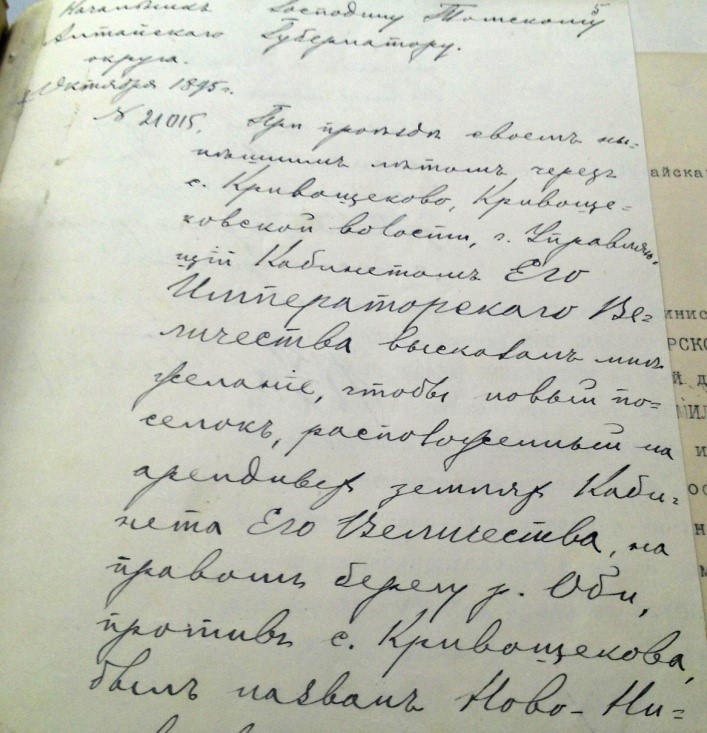 5
Начальникъ Господину Томскому
Алтайскаго Губернатору.
округа.
Октября 1895 г.
№ 21015. При проѣздѣ своемъ ны=
нѣшнимъ лѣтомъ черезъ
с. Кривощеково, Кривоще=
ковской волости, г. Управляю=
щій Кабинетомъ Его
Императорскаго Ве=
личества высказалъ мнѣ
желаніе, чтобы новый по=
селокъ, расположенный на
арендныхъ земляхъ Каби=
нета Его Величества, на
правомъ берегу р. Оби,
противъ с. Кривощекова,
былъ названъ Ново-Ни=
айска
инис
РСКО
й д
МИЛ
и
ос
н
м